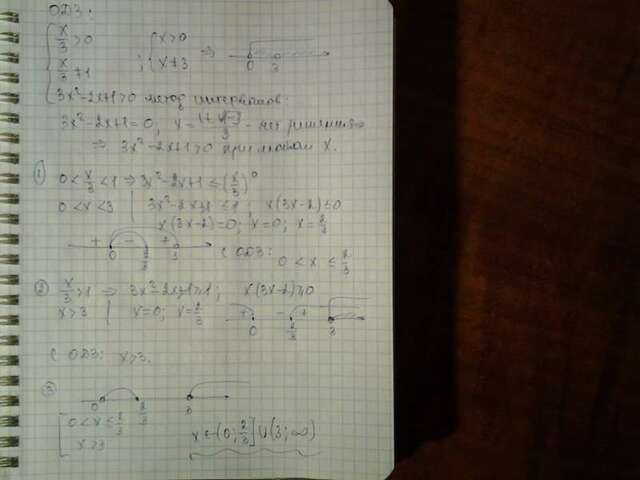 ОДЗ:
x/3 > 0 ; x > 0 ⇒ 0 3
x/3 ≠ 1 x ≠ 3
3x²-2x+1>0 метод интервалов.
3x²-2x+1=0; x = - нет решения
⇒ 3x²-2x+1>0 при любом x.
① 0 < x/3 < 1 ⇒ 3x²-2x+1 ≤ (x/3)⁰
0 < x < 3 | 3x²-2x+1 ≤ 1 ; x(3x-2) ≤ 0
x(3x-2)=0; x=0; x=2/3
+ - + 0 2/3 3
С ОДЗ: 0 < x ≤ 2/3
② x/3 > 1 ⇒ 3x²-2x+1 ≥ 1; x(3x-2) ≥ 0
x > 3 | x=0; x=2/3 + - + 0 2/3 3
С ОДЗ: x>3.
③ 0 2/3 3
0 < x ≤ 2/3
x > 3 x ∈ (0; 2/3] ∪ (3; ∞)